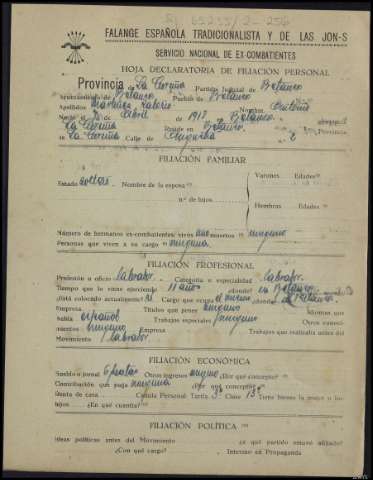 65233/2-256
FALANGE ESPAÑOLA TRADICIONALISTA Y DE LAS JON-S
SERVICIO NACIONAL DE EX-COMBATIENTES
HOJA DECLARATORIA DE FILIACIÓN PERSONAL
Provincia de La Coruña Partido Judicial de Betanzos
Ayuntamiento de Betanzos Pueblo de Betanzos
Apellidos Nombre Antonio
Nació el de Abril de 1912 Betanzos
La Coruña Reside en Betanzos Provincia
La Coruña Calle de n.º 2
FILIACIÓN FAMILIAR
Estado soltero Nombre de la esposa Varones Edades
n.º de hijos
Hembras Edades
Número de hermanos ex-combatientes: vivos uno muertos ninguno
Personas que viven a su cargo ninguna
FILIACIÓN PROFESIONAL
Profesión u oficio labrador Categoría o especialidad labrador
Tiempo que lo viene ejerciendo 11 años ¿dónde? en Betanzos
¿Está colocado actualmente? Si Cargo que ocupa el mismo ¿dónde? en Betanzos
Empresa Títulos que posee ninguno Idiomas que
habla español Trabajos especiales ninguno Otros conoci-
mientos ninguno Empresa Trabajos que realizaba antes del
Movimiento labrador
FILIACIÓN ECONÓMICA
Sueldo o jornal 6 pesetas Otros ingresos ninguno ¿Por qué concepto?
Contribución que paga ninguna ¿Por qué concepto?
Renta de casa Cédula Personal Tarifa 3ª Clase 13ª Tiene bienes la mujer o hi-
jos ¿En qué cuantía?
FILIACIÓN POLÍTICA
Ideas políticas antes del Movimiento ¿a qué partido estuvo afiliado?
¿Con qué cargo? Intervino en Propaganda